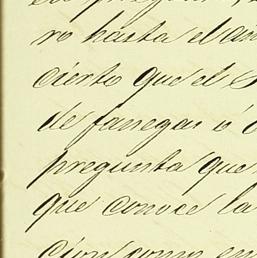 ro hasta el
cierto que el S
de fanegas ó
pregunta que
que conoce la